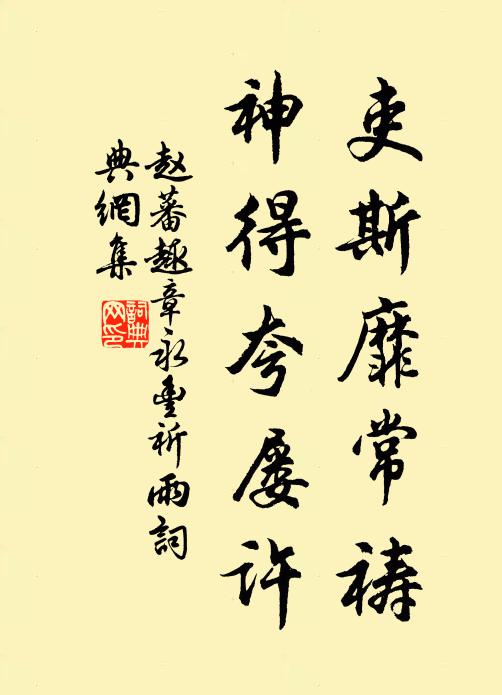 吏斯靡常祷
神得夸屡许
赵蕃趣章永丰祈雨词
典網集
詞典網印